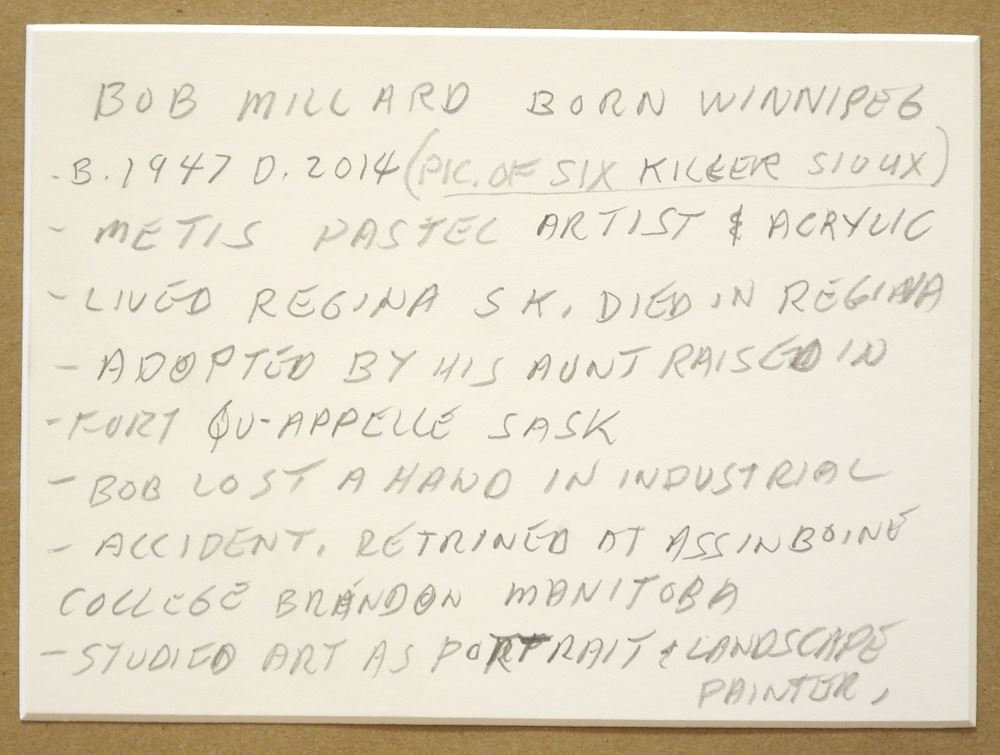 BOB MILLARD BORN WINNIPEG
.B.1947 D.2014 (PIC. OF SIX KILLER SIOUX)
- METIS PASTEL ARTIST & ACRYLIC
- LIVED REGINA SK. DIED IN REGINA
- ADOPTED BY HIS AUNT RAISED IN
- FORT QU-APPELLE SASK
- BOB LOST A HAND IN INDUSTRIAL
- ACCIDENT. RETRINED AT ASSINBOINE
COLLEGE BRANDON MANITOBA
- STUDIED ART AS PORTRAIT & LANDSCAPE
PAINTER,